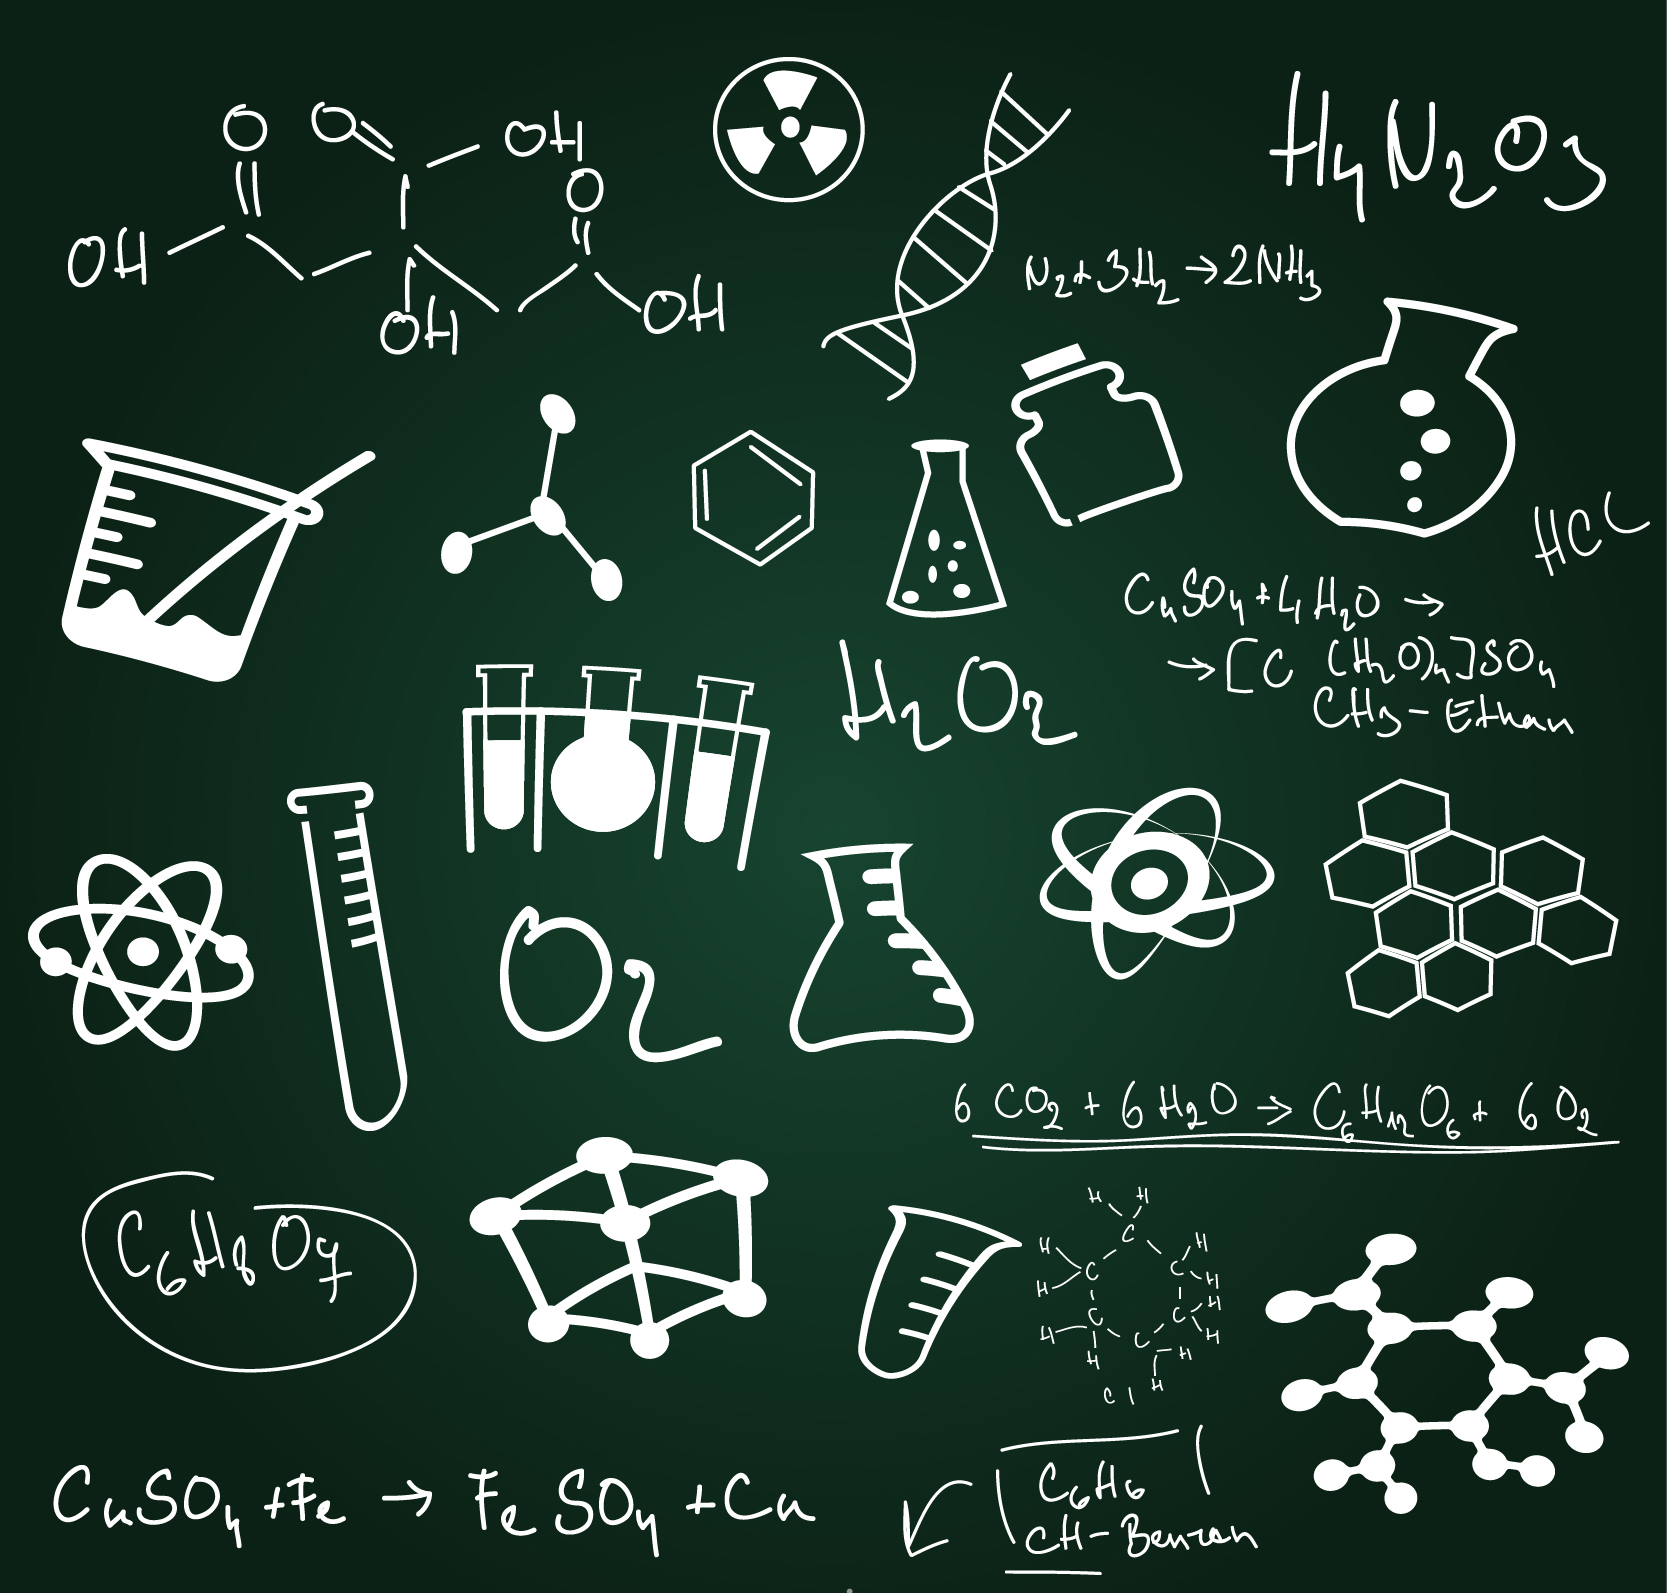 O O OH
O
OH
OH
OH
H4N2O3
N2+3H2→2NH3
HCl
CuSO4+4H2O→
→[C (H2O)4]SO4
CH3-Ethan
H2O2
O2
6CO2+6H2O→C6H12O6+6O2
C6H8O7
H H
C
H C C H
H H
C C H
H C H
H H
Cl H
CuSO4+Fe→FeSO4+Cu
C6H6
CH-Benzan